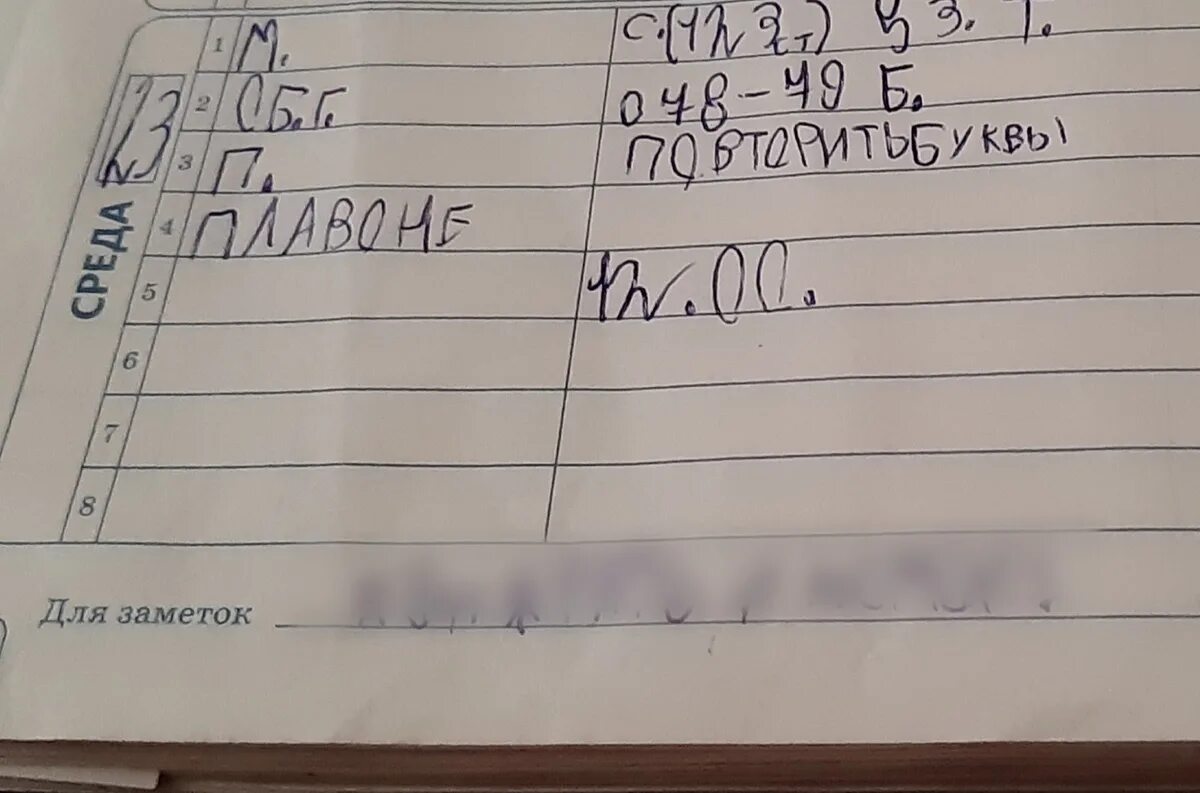 СРЕДА
23
1 М. С.(12 3т) 5 З. Т.
2 СБ.Г. 078-79 Б.
3 П. ПОВТОРИТЬБУКВЫ
4 ПЛАВОНЕ
5 12.00.
6
7
8
Для заметок